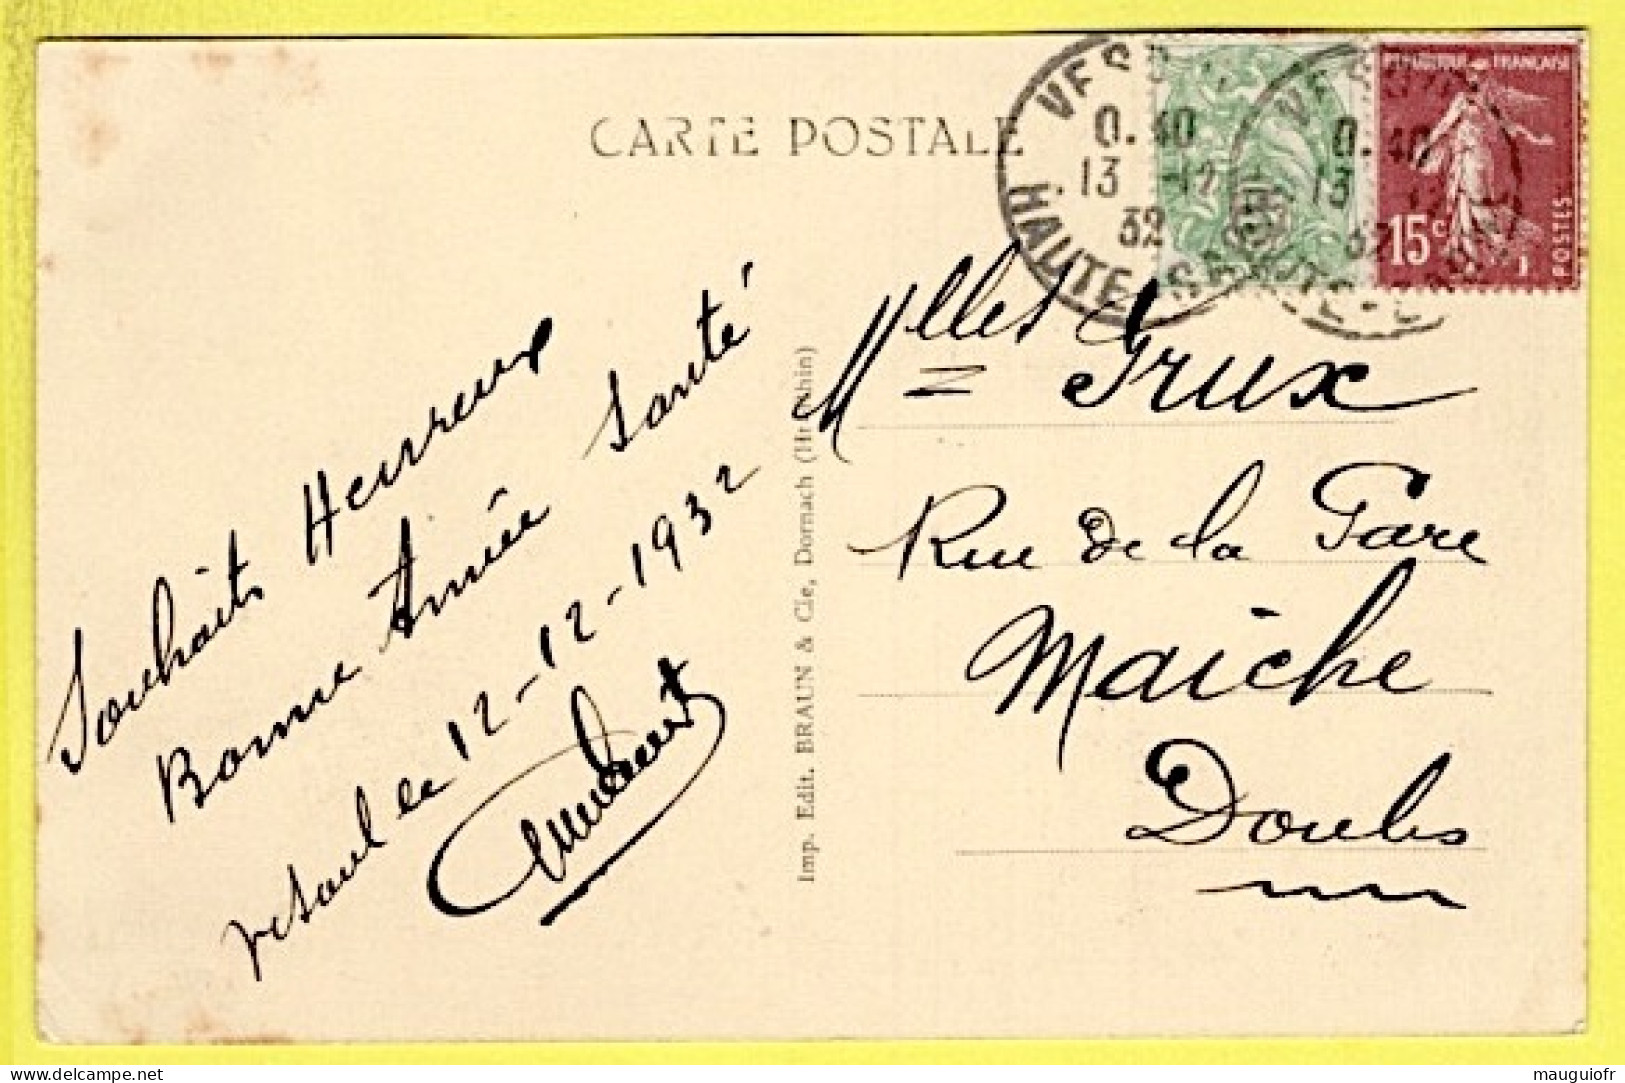 CARTE POSTALE
VESOUL
0.40
13 -12
32
HAUTE-SAÔNE
0.40
13 12
32
REPUBLIQUE FRANÇAISE
15c
POSTES
Souhaits Heureux
Bonne Année Santé
Vesoul le 12-12-1932
Imp. Edit. BRAUN & Cie, Dornach (Ht-Rhin)
Mlles Grux
Rue de la Gare
Maiche
Doubs
mauguiofr